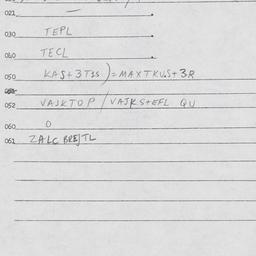 021
030 TEPL
040 TECL
050 KAS+3TSS)=MAXTKUS+3R
052 VAJKTOP/VAJKS+EFL QU
060 0
061 ZALC BRE/TL